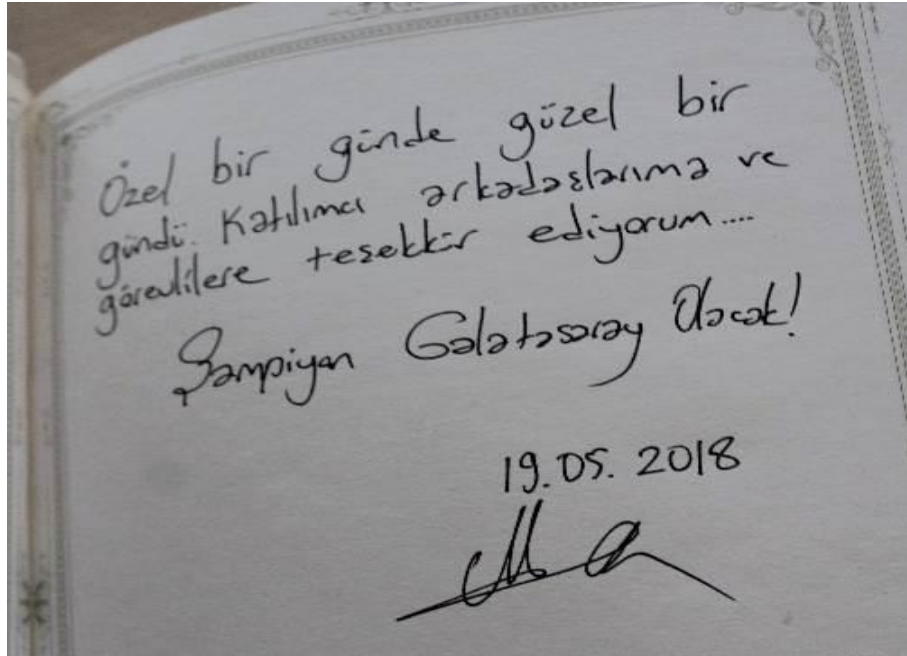 Özel bir günde güzel bir
gündü. Katılımcı arkadaşlarıma ve
görevlilere teşekkür ediyorum....
Şampiyon Galatasaray Olacak!
19.05.2018